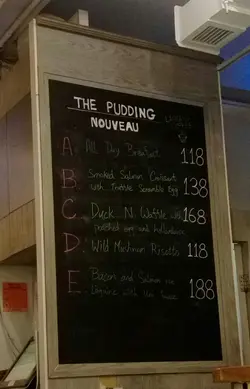 THE PUDDING
NOUVEAU
A. All Day Breakfast 118
B. Smoked Salmon Croissant
with Truffle Scramble Egg 138
C. Duck N Waffle with 168
poached egg and hollandaise
D. Wild Mushroom Risotto 118
E. Bacon and Salmon
Linguine with 188